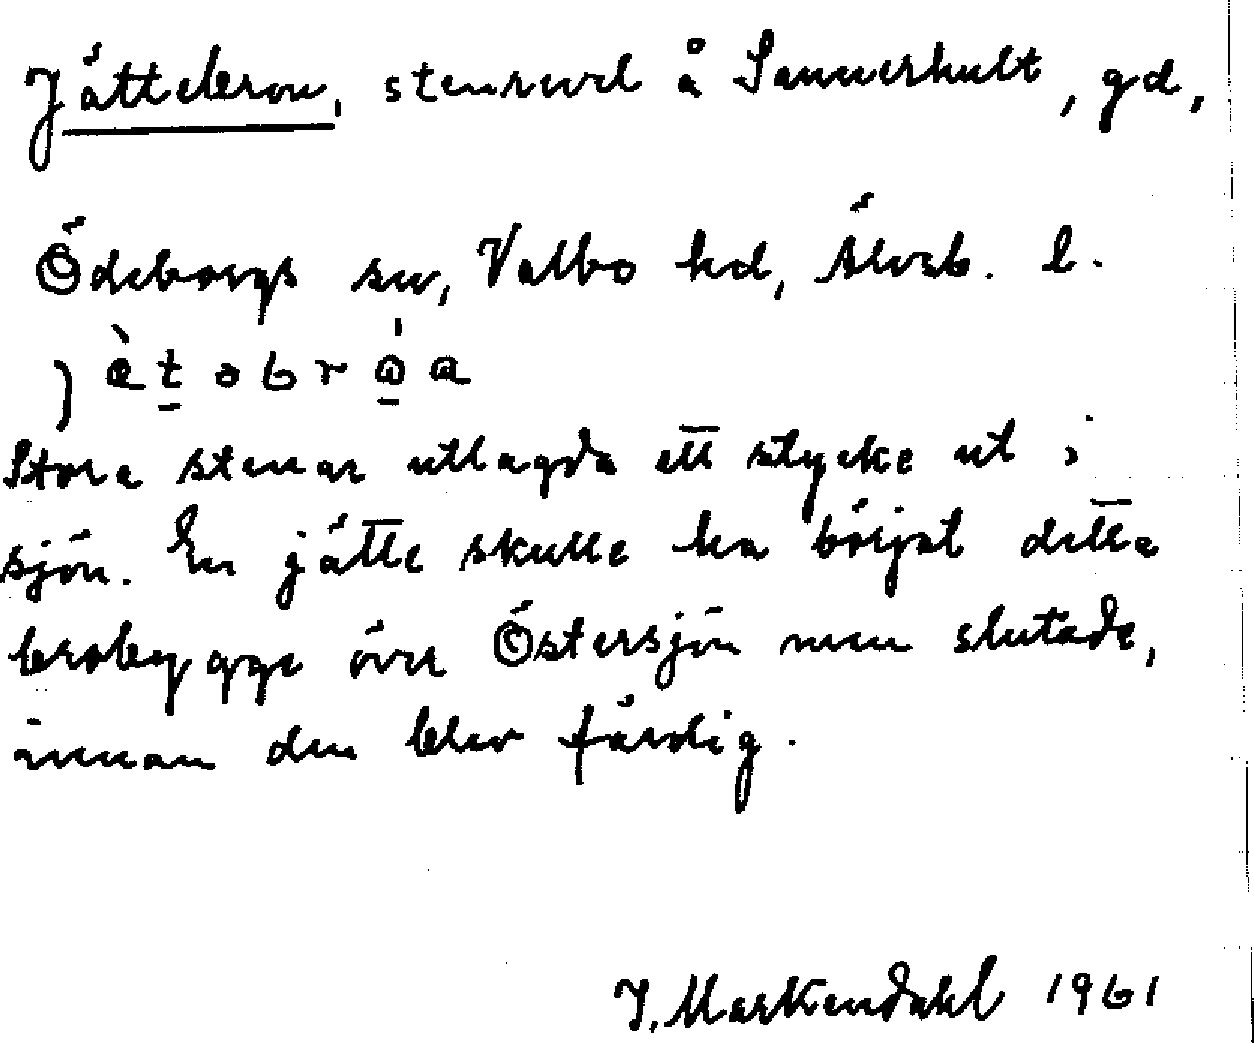 Jättebron, stenrevel å Sannerhult, gd,
Ödeborgs sn, Valbo hd, Älvsb. l.
Stora stenar utlagda ett stycke ut i
sjön. En jätte skulle ha börjat detta
brobygge över Östersjön men slutade,
innan den blev färdig.
I. Markendahl 1961